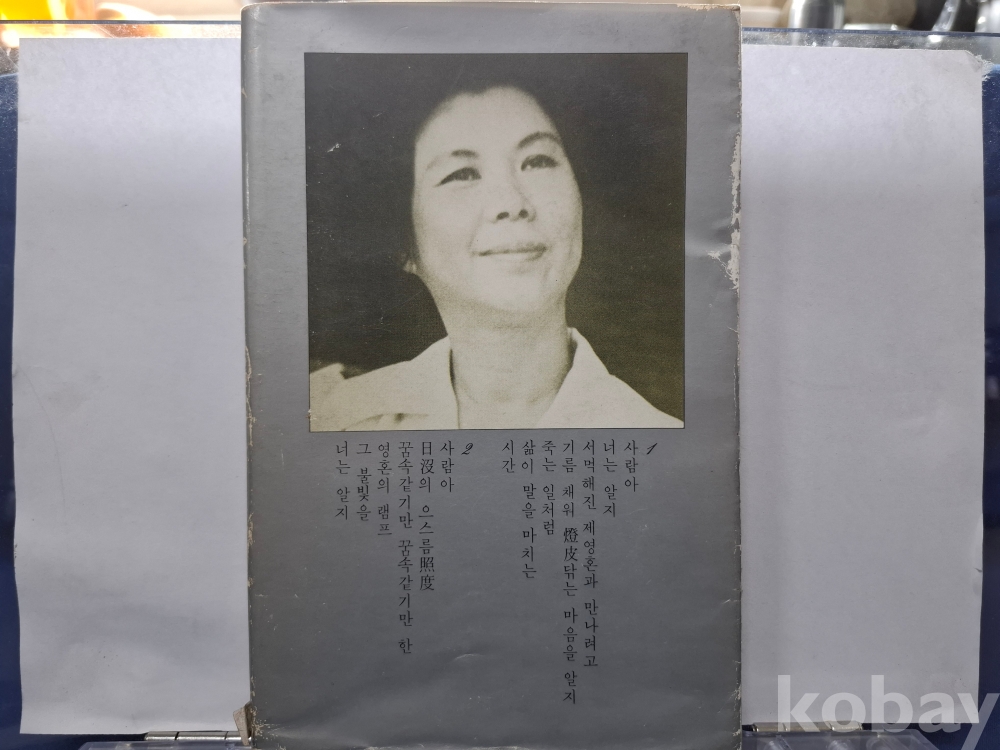 1
사람아
너는 알지
서먹해진 제영혼과 만나려고
기름 채워 燈皮닦는 마음을 알지
죽는 일처럼
삶이 말을 마치는
시간
2
사람아
日沒의 으스름照度
꿈속같기만 꿈속같기만 한
영혼의 램프
그 불빛을
너는 알지
kobay